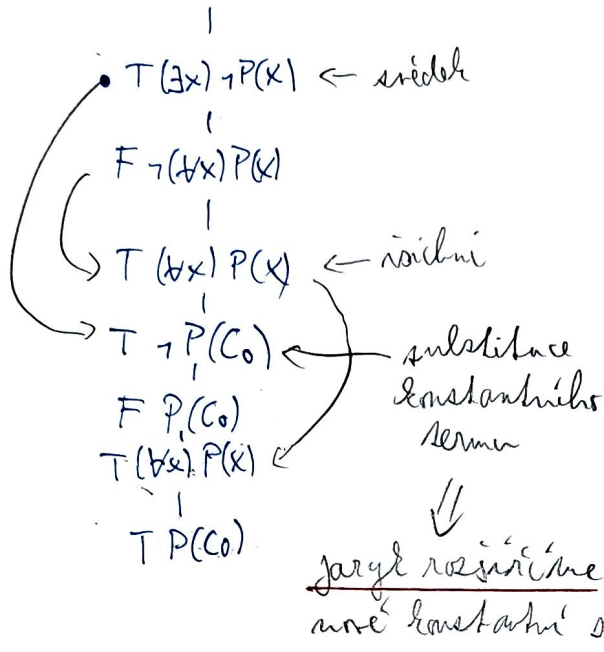 T (∃x) ¬P(x) ← svědek
F ¬(∀x) P(x)
T (∀x) P(x) ← všichni
T ¬P(C₀) ← substituce
konstantního
F P(C₀) termu
T(∀x) P(x)
⇓
T P(C₀)
jazyk rozšíříme
nové konstantní s